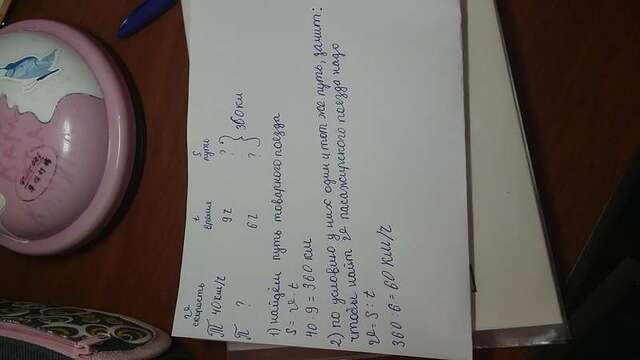 v скорость t время S путь
Т 40 км/ч 9ч ? } 360 км
П ? 6ч ?
1) найдём путь товарного поезда
S = v · t
40 · 9 = 360 км
2) по условию у них один и тот же путь, значит:
чтобы найт v пасажирского поезда надо
v = S : t
360 : 6 = 60 км/ч